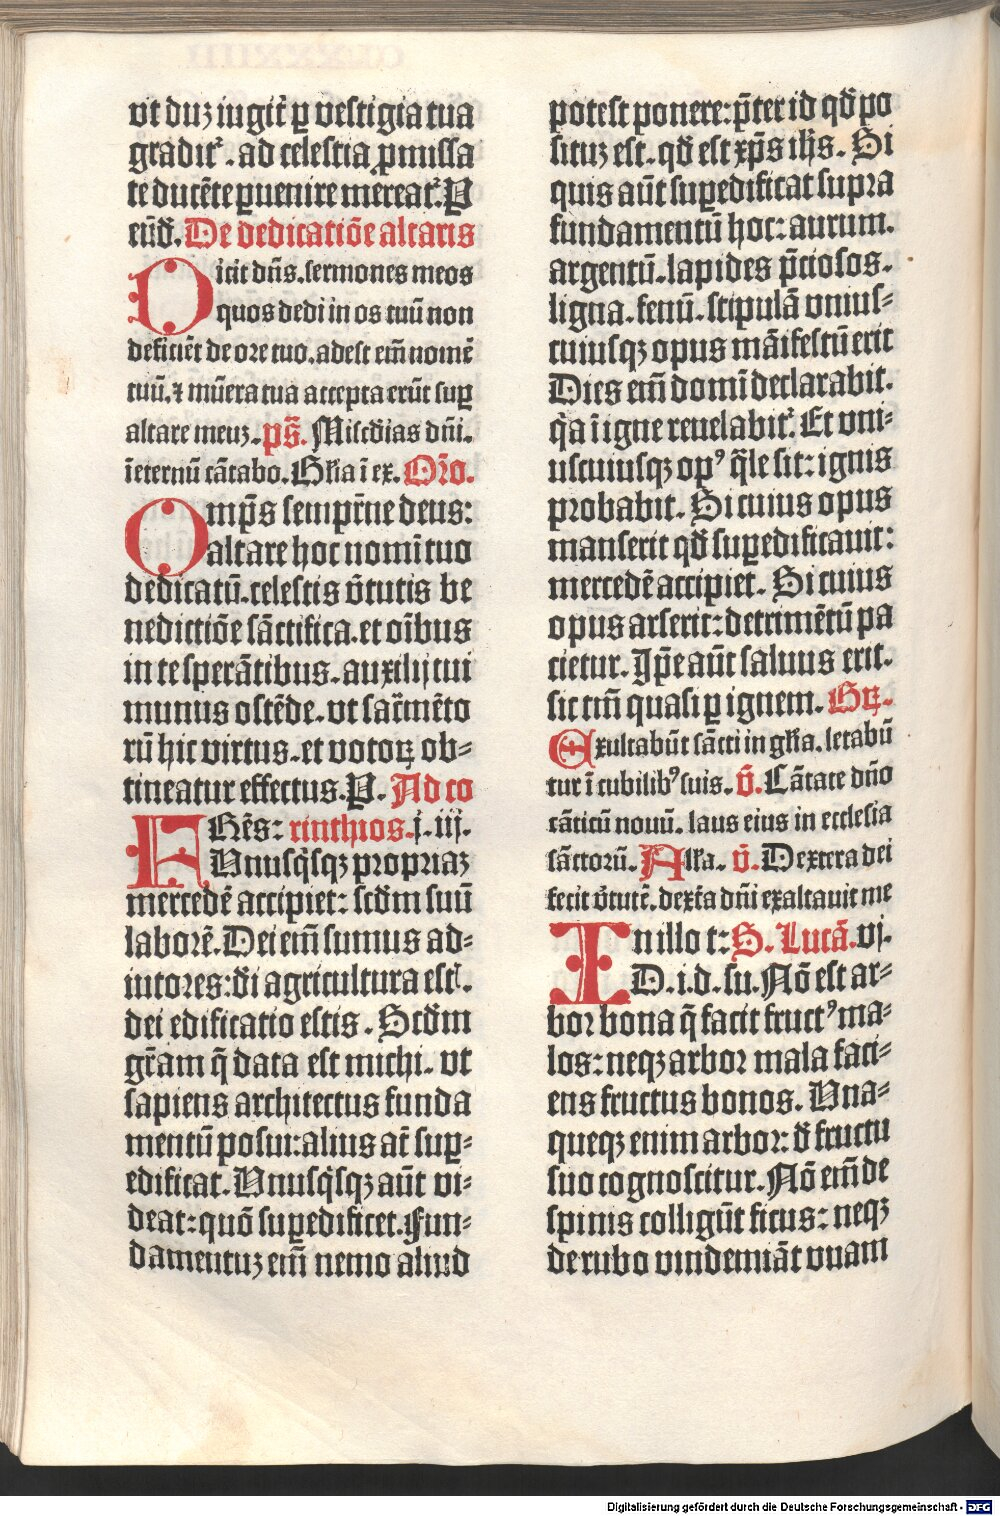 vt duꝫ iugiṫ ꝑ vestigia tua
gradit᷑. ad celestia ꝓmissa
te ducẽte ꝑuenire mereat᷑. P
eũd̃. De dedicatiõe altaris
Dicit dñs. sermones meos
quos dedi in os tuũ non
deficiẽt de ore tuo. adest em̃ nomẽ
tuũ. ⁊ mũera tua accepta erũt suꝑ
altare meuꝫ. ps̃. Miscd̃ias dñi.
ĩeternũ cãtabo. Gl̃ia ĩ ex. Or̃o.
Omp̃s semp̃rne deus:
altare hoc nomĩ tuo
dedicatũ. celestis ṽtutis be
nedictiõe sãctifica. et oĩbus
in te sperãtibus. auxilij tui
munus ostẽde. vt sac̃mẽto
rũ hic virtus. et votoꝝ ob⸗
tineatur effectus. P. Ad co
FRẽs: rinthios. j. iij.
Vnusq̃sqꝫ propriaꝫ
mercedẽ accipiet: scd̃m suũ
laborẽ. Dei em̃ sumus ad⸗
iutores: d̃i agricultura est̃.
dei edificatio estis. Scd̃m
gr̃am q̃ data est michi. vt
sapiens architectus funda
mentũ posui: alius aũt suꝑ⸗
edificat. Vnusq̃sqꝫ aũt vi⸗
deat: quõ suꝑedificet. Fun⸗
damentuꝫ em̃ nemo aliud
potest ponere: p̃ter id qd̃ po
situꝫ est. qd̃ est xp̃s ih̃s. Si
quis aũt suꝑedificat supra
fundamentũ hoc: aurum.
argentũ. lapides p̃ciosos.
ligna. fenũ. stipulã vnius⸗
cuiusqꝫ opus mãifestũ erit
Dies em̃ domĩ declarabit.
q̃a ĩ igne reuelabit᷑. Et vni⸗
uscuiusqꝫ opꝰ q̃le sit: ignis
probabit. Si cuius opus
manserit qd̃ suꝑedificauit:
mercedẽ accipiet. Si cuius
opus arserit: detrimẽtũ pa
cietur. Ip̃e aũt saluus erit.
sic tm̃ quasi ꝑ ignem. Gꝝ.
Exultabũt sãcti in gl̃ia. letabũ
tur ĩ cubilibꝰ suis. ṽ. Cãtate dño
cãticũ nouũ. laus eius in ecclesia
sãctorũ. All̃a. ṽ. Dextera dei
fecit ṽtutẽ. dext̃a dñi exaltauit me
In illo t: S. Lucã. vj.
D. i. d. su. Nõ est ar⸗
bor bona q̃ facit fructꝰ ma⸗
los: neqꝫ arbor mala faci⸗
ens fructus bonos. Vna⸗
queqꝫ enim arbor: d̃ fructu
suo cognoscitur. Nõ em̃ de
spinis colligũt ficus: neqꝫ
de rubo vindemiãt vuam
Digitalisierung gefördert durch die Deutsche Forschungsgemeinschaft - DFG